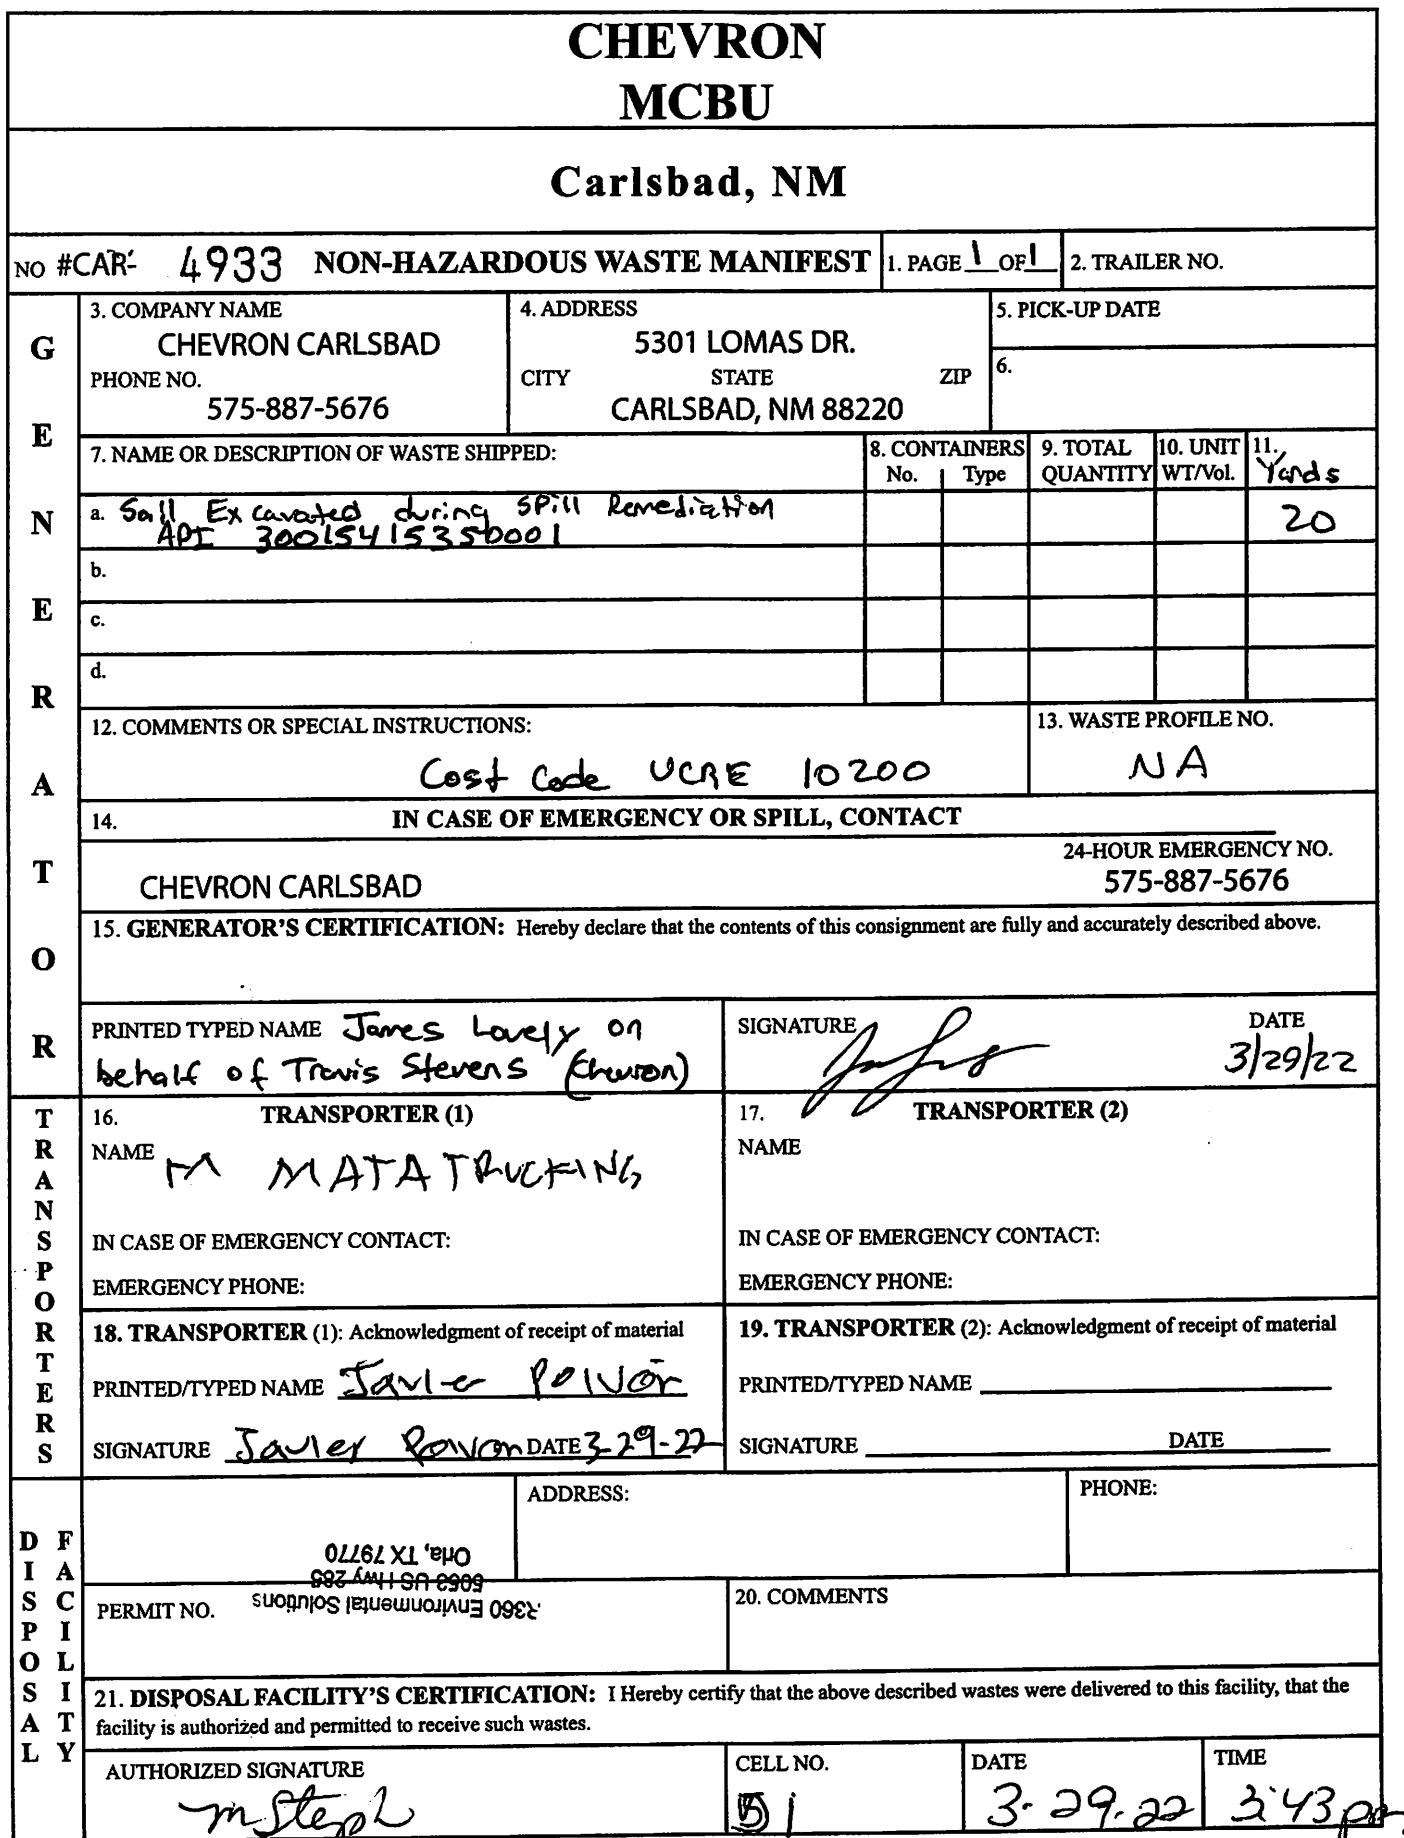 CHEVRON
MCBU
Carlsbad, NM
NO #CAR- 4933 NON-HAZARDOUS WASTE MANIFEST 1. PAGE 1 OF 1 2. TRAILER NO.
GENERATOR
3. COMPANY NAME
CHEVRON CARLSBAD
PHONE NO.
575-887-5676
4. ADDRESS
5301 LOMAS DR.
CITY STATE ZIP
CARLSBAD, NM 88220
5. PICK-UP DATE
6.
7. NAME OR DESCRIPTION OF WASTE SHIPPED:
8. CONTAINERS
No. Type
9. TOTAL
QUANTITY
10. UNIT
WT/Vol.
11.
Yards
a. Soil Excavated during SPill Remediation 20
API 30015415350001
b.
c.
d.
12. COMMENTS OR SPECIAL INSTRUCTIONS:
Cost Code UCRE 10200
13. WASTE PROFILE NO.
NA
14. IN CASE OF EMERGENCY OR SPILL, CONTACT
24-HOUR EMERGENCY NO.
CHEVRON CARLSBAD 575-887-5676
15. GENERATOR'S CERTIFICATION: Hereby declare that the contents of this consignment are fully and accurately described above.
PRINTED TYPED NAME James Lovely on
behalf of Travis Stevens (Chevron)
SIGNATURE
DATE
3/29/22
TRANSPORTERS
16. TRANSPORTER (1)
NAME M MATA TRUCKING
IN CASE OF EMERGENCY CONTACT:
EMERGENCY PHONE:
17. TRANSPORTER (2)
NAME
IN CASE OF EMERGENCY CONTACT:
EMERGENCY PHONE:
18. TRANSPORTER (1): Acknowledgment of receipt of material
PRINTED/TYPED NAME Javier
SIGNATURE Javier DATE 3-29-22
19. TRANSPORTER (2): Acknowledgment of receipt of material
PRINTED/TYPED NAME
SIGNATURE DATE
DISPOSAL FACILITY
ADDRESS:
PHONE:
R360 Environmental Solutions
6053 US Hwy 285
Orla, TX 79770
PERMIT NO.
20. COMMENTS
21. DISPOSAL FACILITY'S CERTIFICATION: I Hereby certify that the above described wastes were delivered to this facility, that the
facility is authorized and permitted to receive such wastes.
AUTHORIZED SIGNATURE
CELL NO.
DATE
3-29-22
TIME
3:43 pm